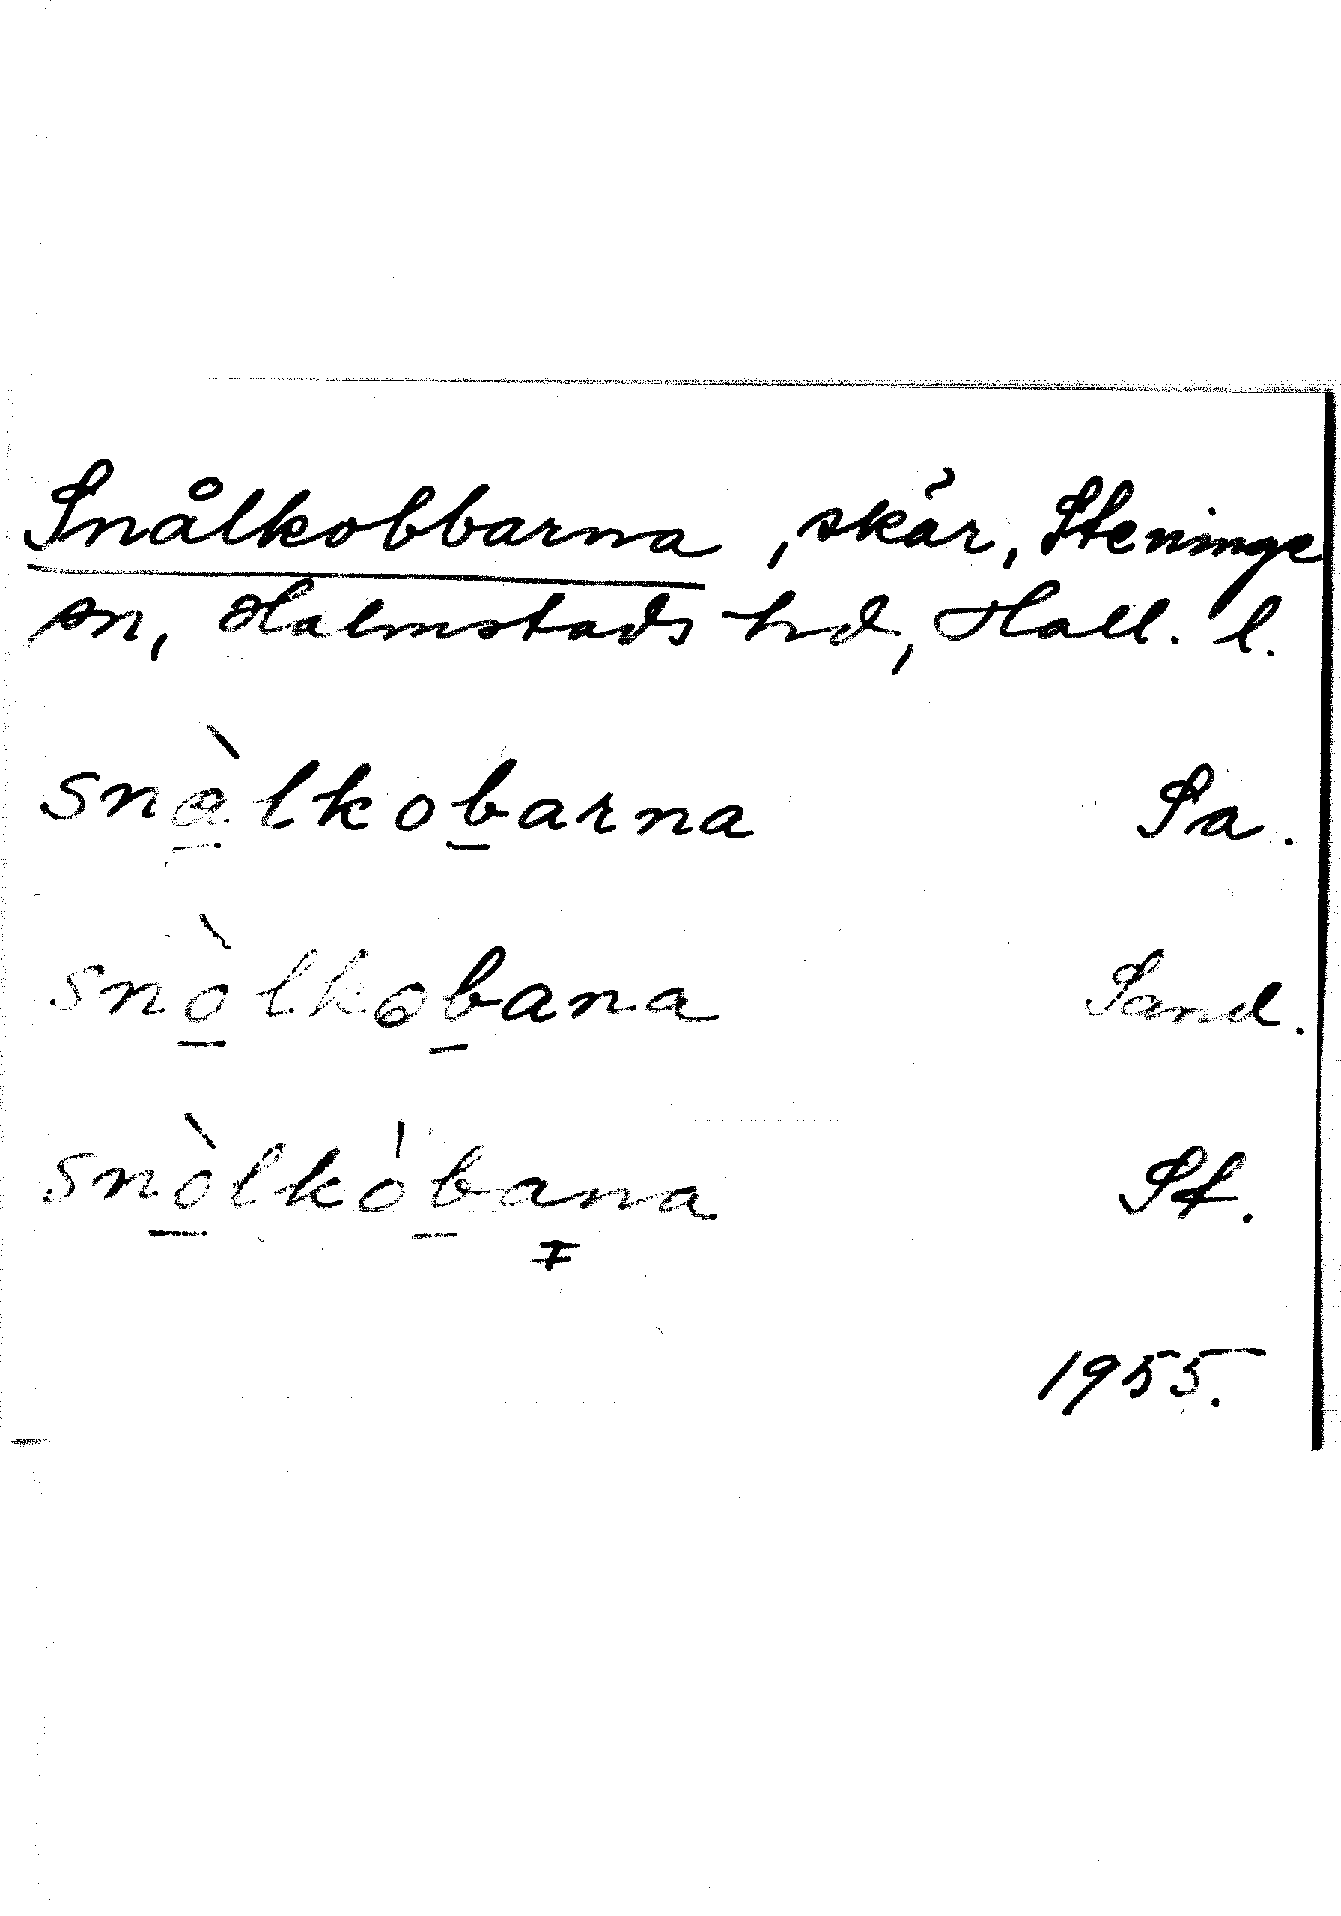 Snålkobbarna, skär, Steninge
sn, Halmstads hd, Hall. l.
snàlkobarna Sa.
snòlkobana Sand.
snòlkóbana St.
1955.